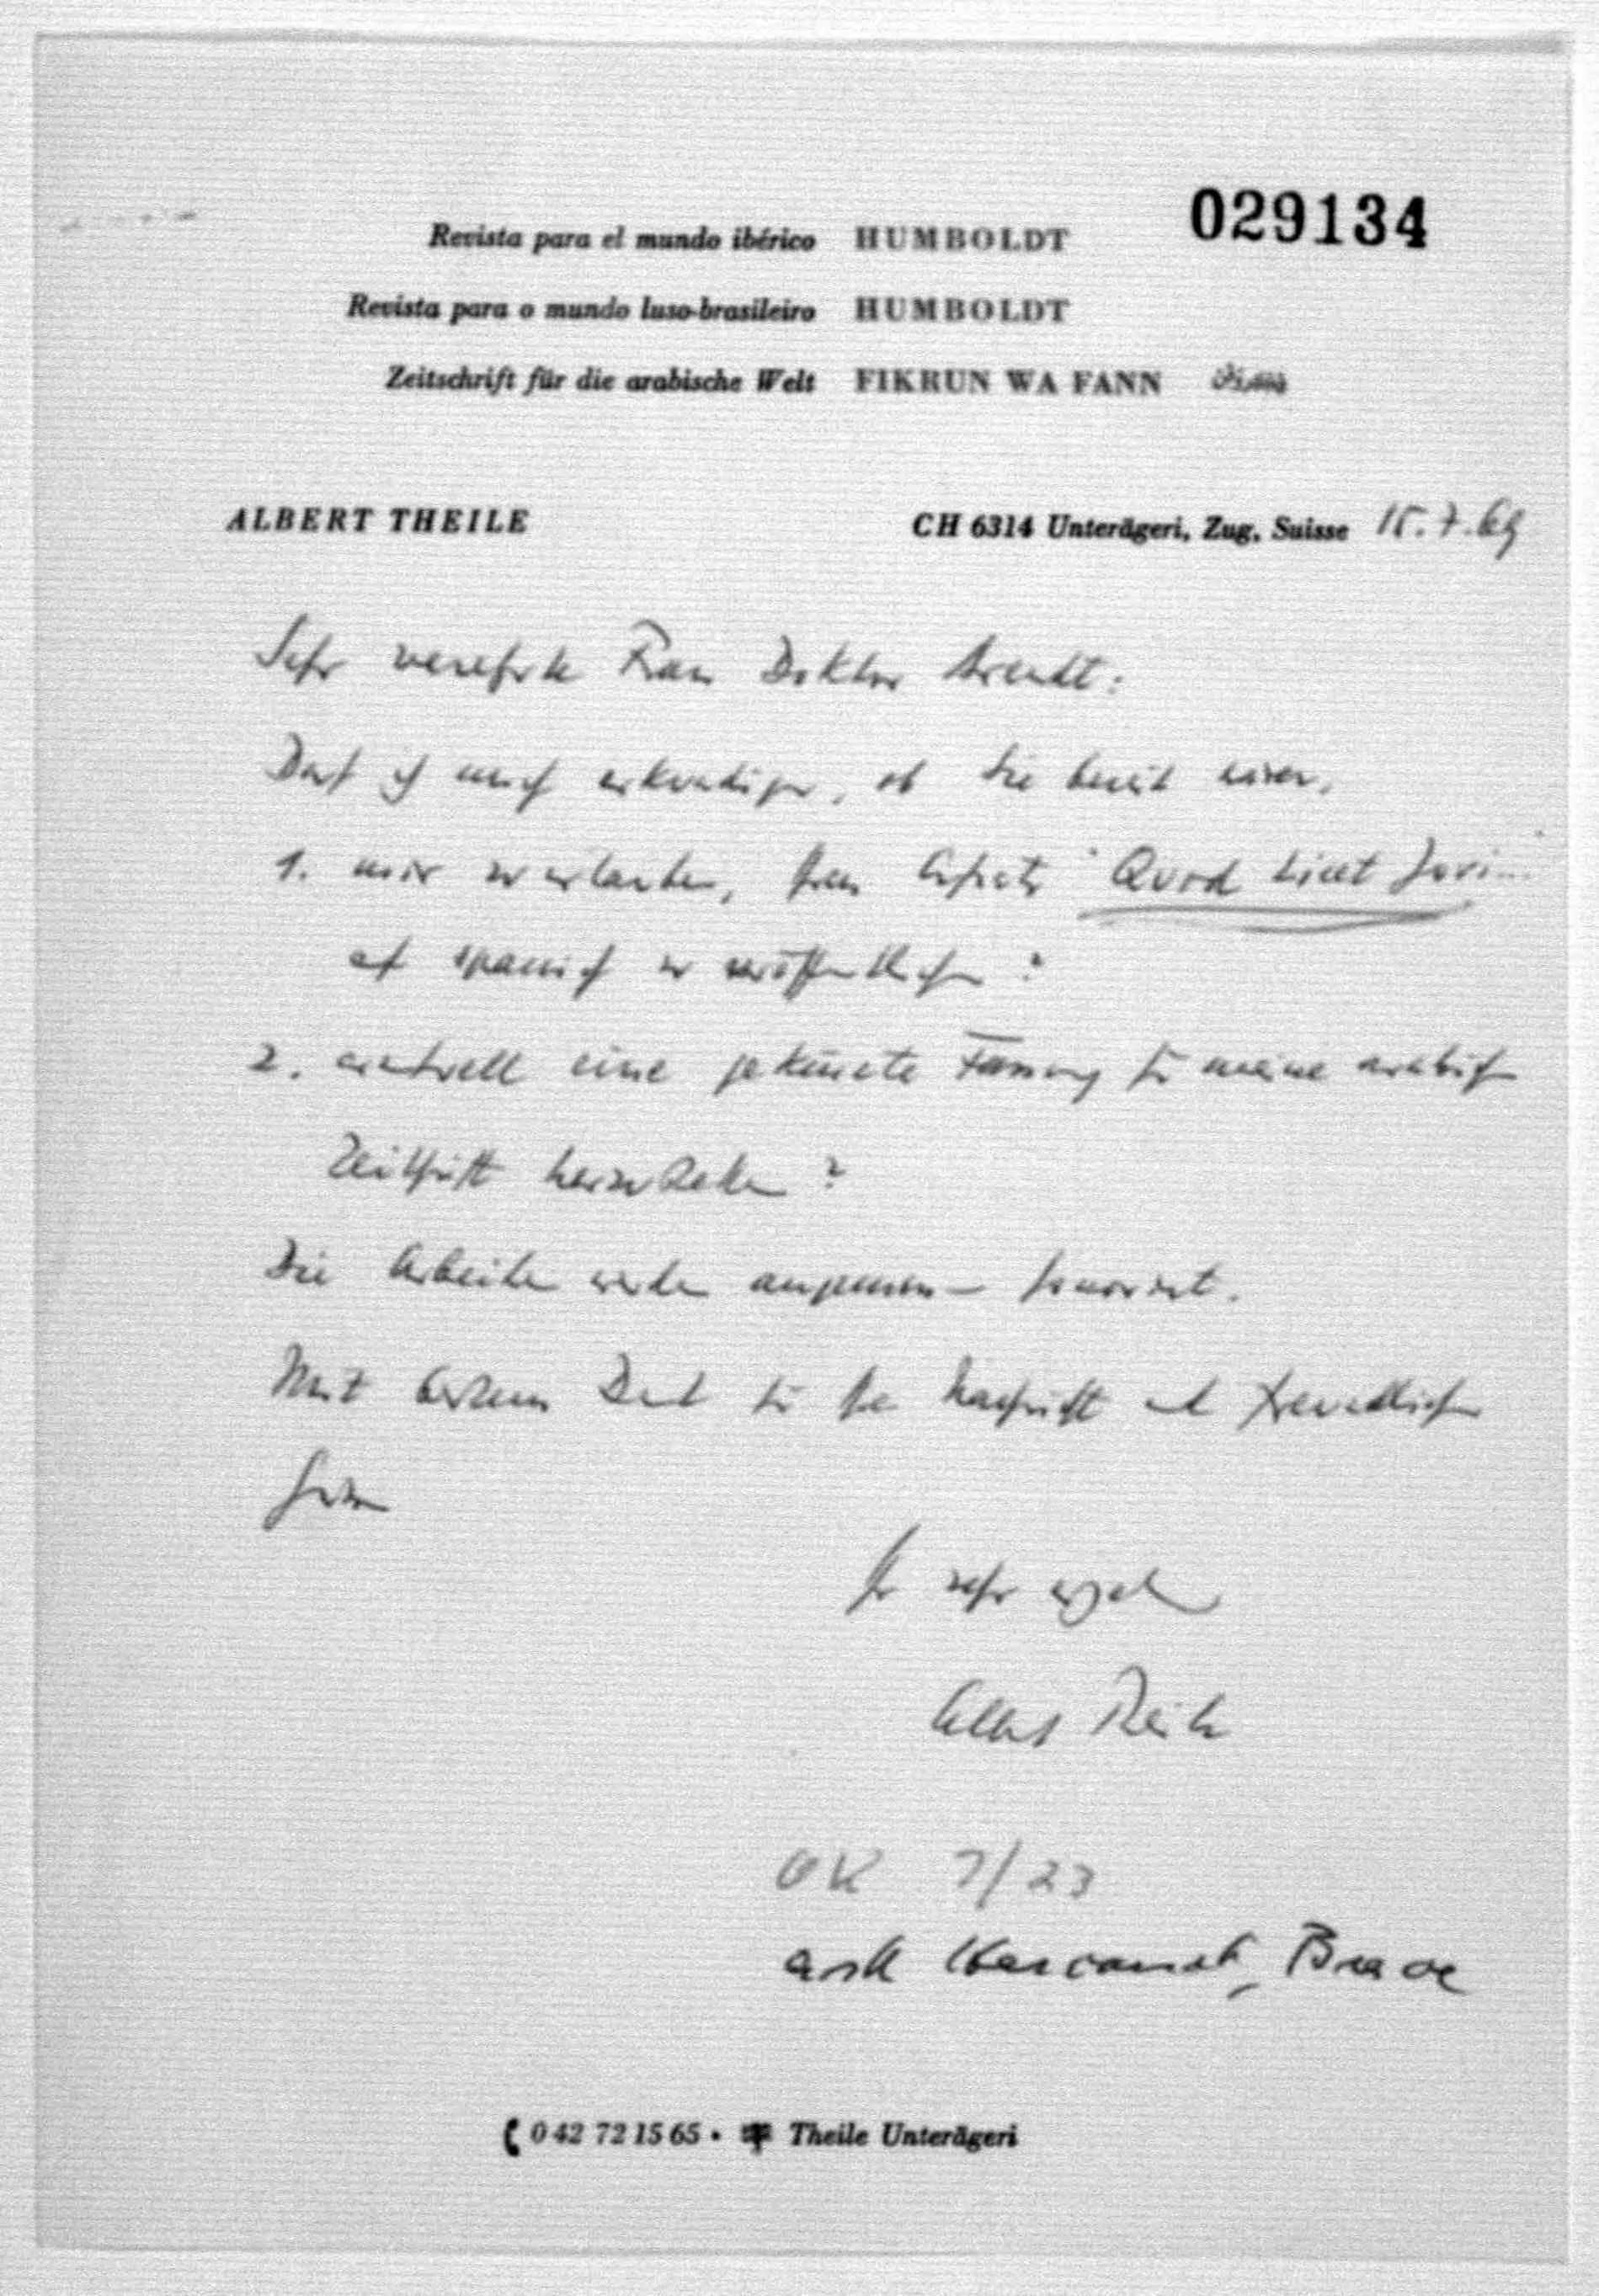 029134
Revista para el mundo ibérico HUMBOLDT
Revista para o mundo luso-brasileiro HUMBOLDT
Zeitschrift für die arabische Welt FIKRUN WA FANN
ALBERT THEILE CH 6314 Unterägeri, Zug, Suisse 15.7.69
Sehr verehrte Frau Doktor Arendt:
Darf ich mich erkundigen, ob Sie bereit wären,
1. mir zu erlauben, Ihren Aufsatz "Quod Licet Jovi...
auf spanisch zu veröffentlichen?
2. eventuell eine gekürzte Fassung für meine arabische
Zeitschrift herzustellen?
Die Arbeiten werden angemessen honoriert.
Mit bestem Dank für Ihre Nachricht und freundlichen
Grüssen
Ihr sehr ergebener
Albert Theile
OK 7/23
ask Harcourt, Brace
042 72 15 65 · Theile Unterägeri